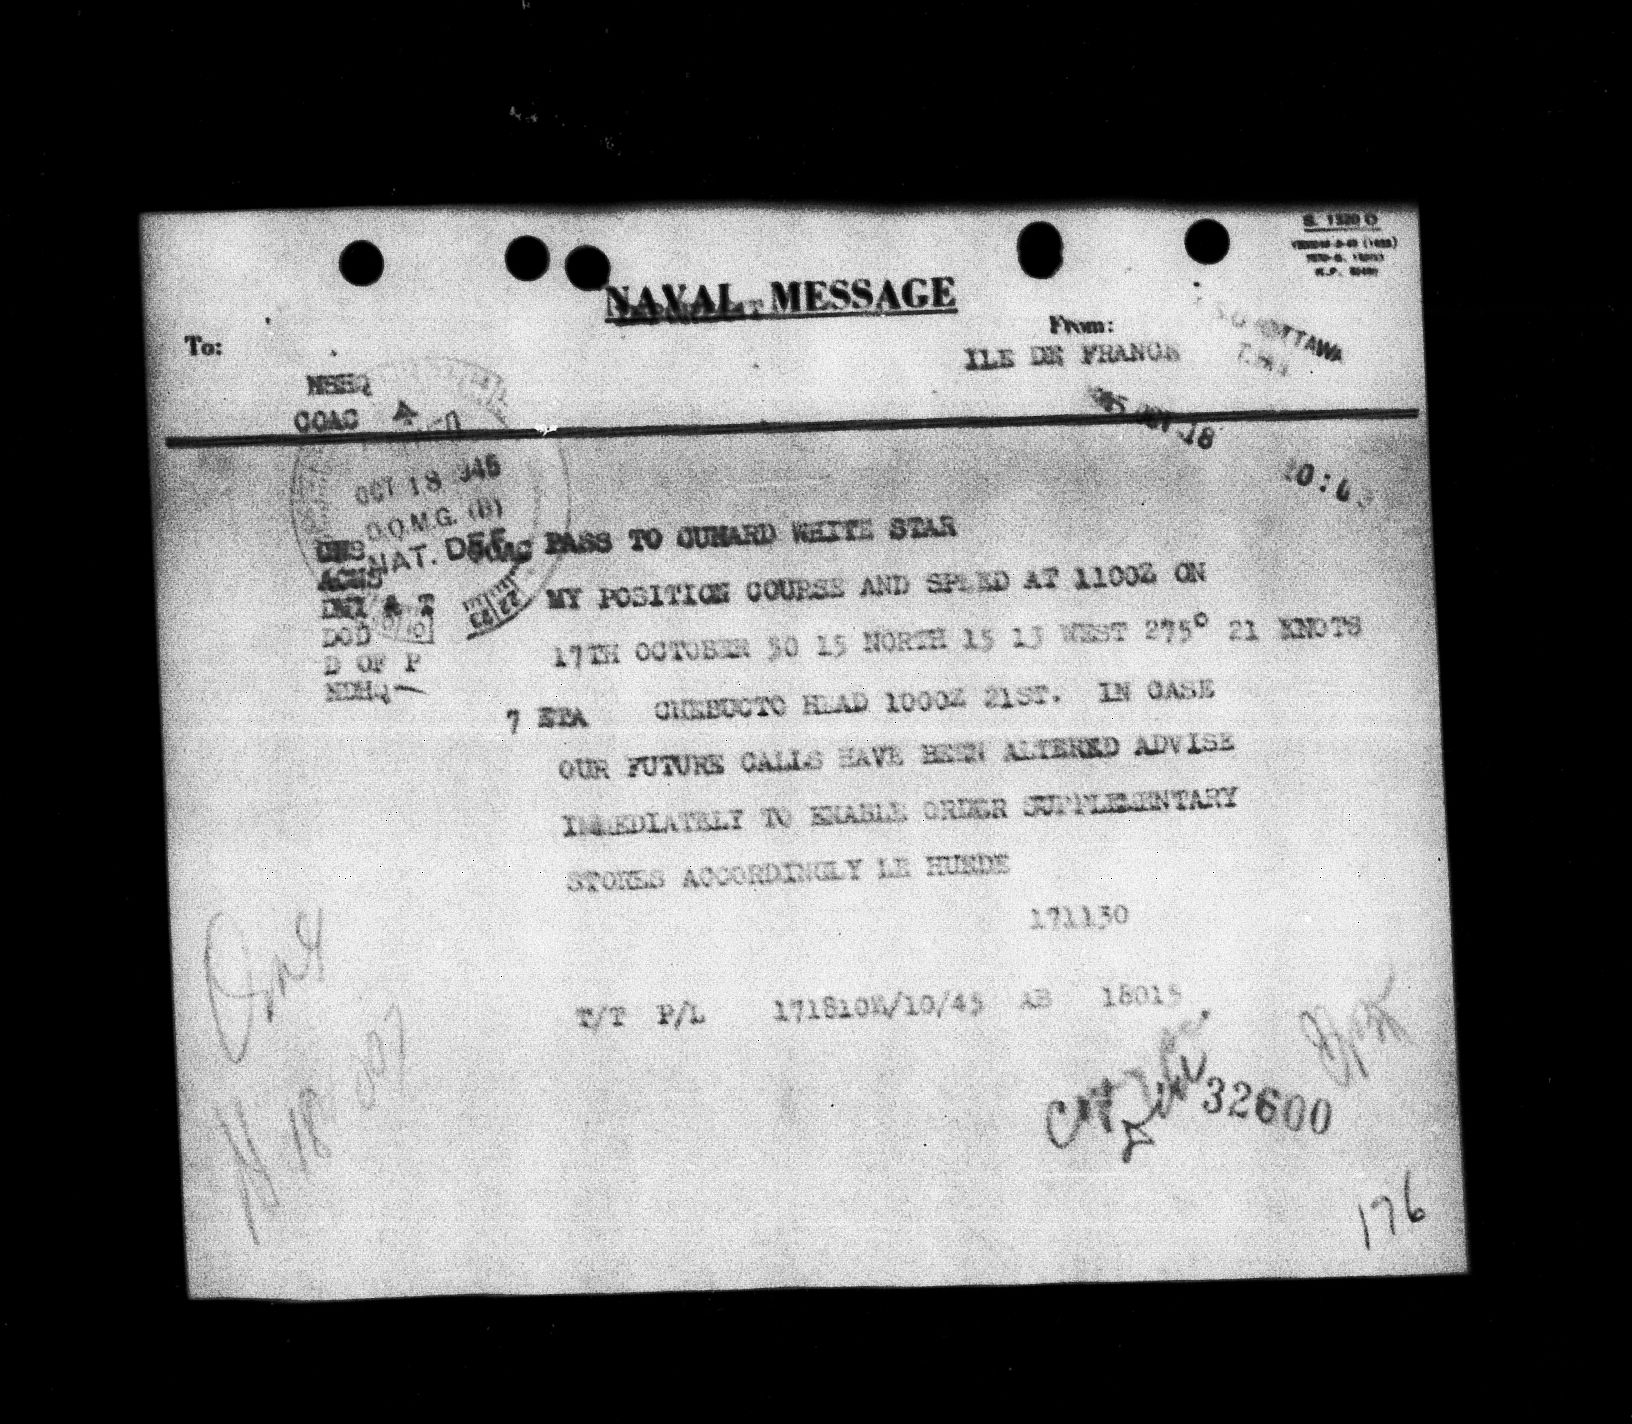 S. 1320 D
NAVAL MESSAGE
To:
From:
ILE DE FRANCE
OTTAWA
NSHQ
COAC
OCT 18 1945
D.Q.M.G. (B)
NAT. DEF.
18
CNS
ACNS
DMT A T
DOD
D OF P
NDHQ
COAC PASS TO CUNARD WHITE STAR
MY POSITION COURSE AND SPEED AT 1100Z ON
17TH OCTOBER 50 15 NORTH 15 13 WEST 275° 21 KNOTS
7 ETA CHEBUCTO HEAD 1000Z 21ST. IN CASE
OUR FUTURE CALLS HAVE BEEN ALTERED ADVISE
IMMEDIATELY TO ENABLE ORDER SUPPLEMENTARY
STORES ACCORDINGLY LE HUEDE
171130
T/T P/L 171810Z/10/45 AB 18015
32600
176